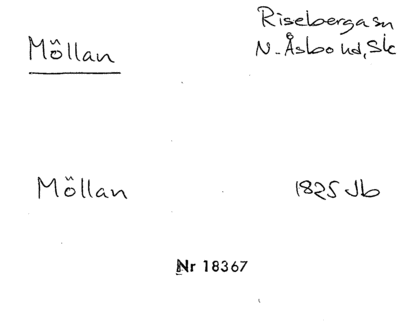 Riseberga sn
Möllan
N. Åsbo hd, Sk
Möllan
1825 Jb
Nr 18367